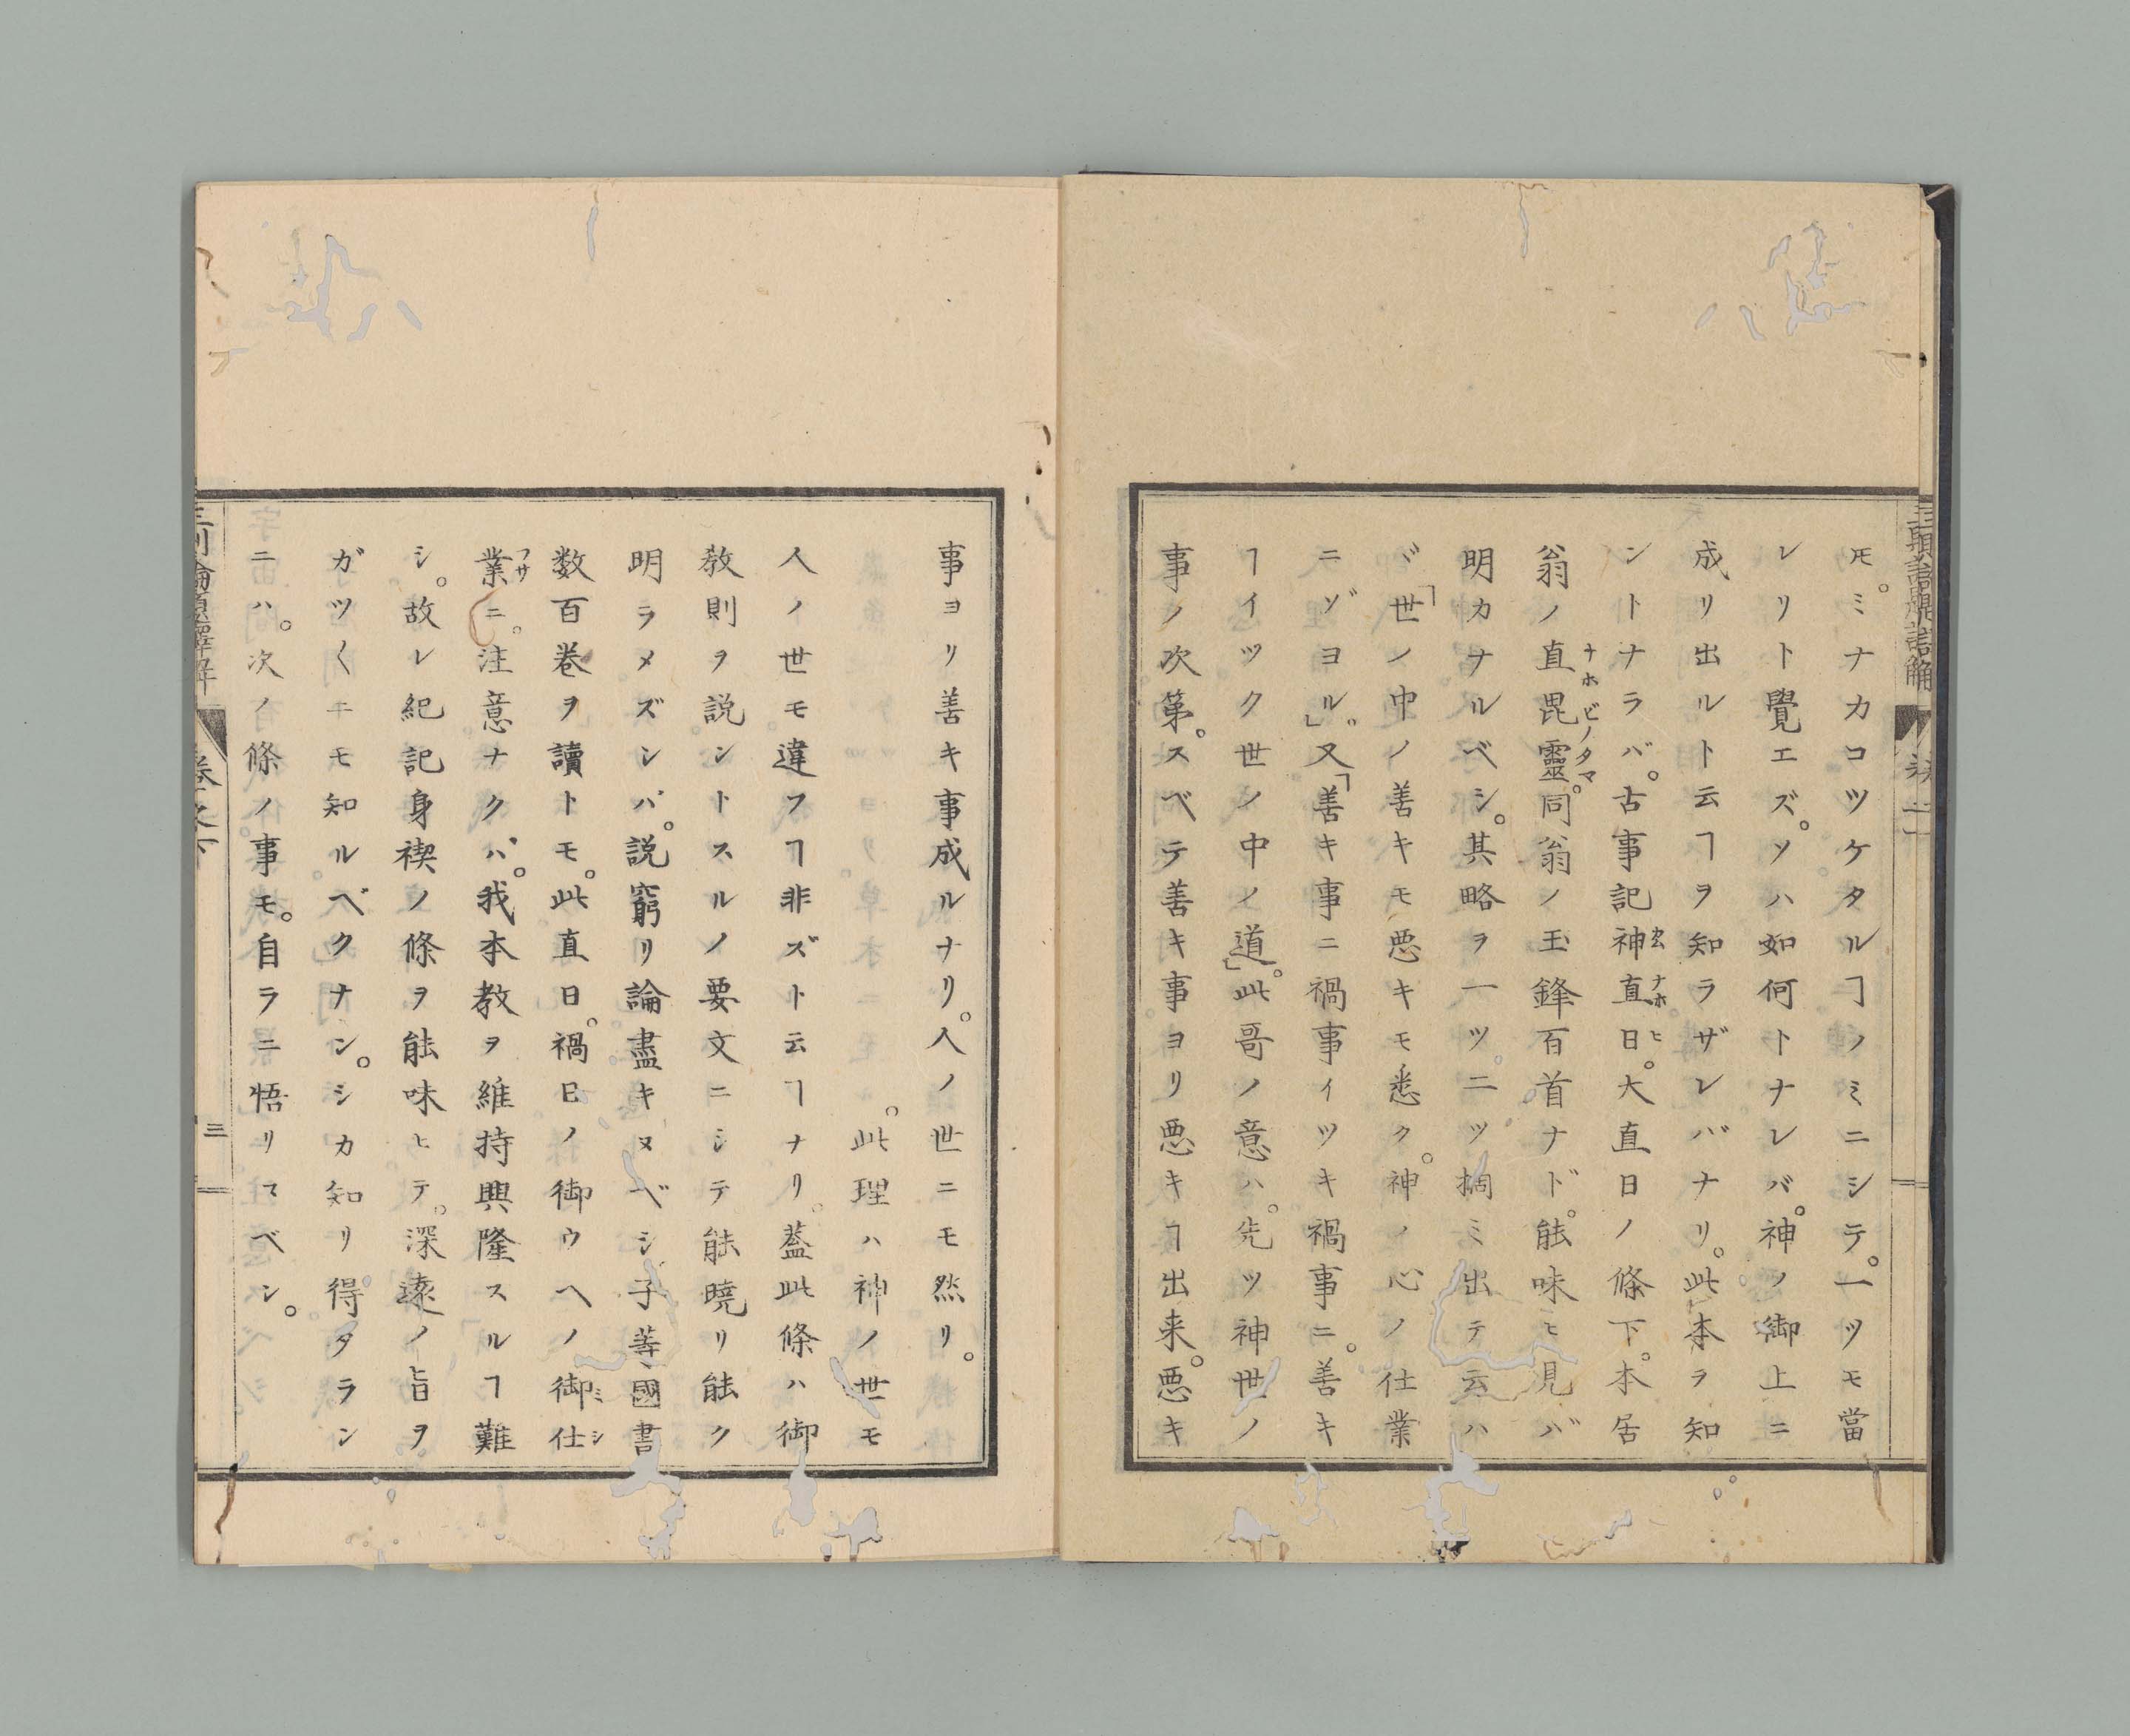 𪜈。ミナカコツケタルヿノミニシテ。一ツモ當
レリト覺エズ。ソハ如何トナレバ。神ノ御上ニ
成リ出ルト云ヿヲ知ラザレバナリ。此本ヲ知
ントナラバ。古事記神直日。大直日ノ條下。本居
翁ノ直毘靈。同翁ノ玉鋒百首ナド。能味ヒ見バ
明カナルベシ。其略ヲ一ツ。二ツ摘ミ出テ云ハ
バ「世ノ中ノ善キモ悪キモ悉ク。神ノ心ノ仕業
ニゾヨル」。又「善キ事ニ禍事イツキ禍事ニ。善キ
ヿイツク世ノ中ノ道」。此哥ノ意ハ。先ツ神世ノ
事ノ次第。スベテ善キ事ヨリ悪キヿ出来。悪キ
事ヨリ善キ事成ルナリ。人ノ世ニモ然リ。
。此理ハ神ノ世モ
人ノ世モ違フヿ非ズト云ヿナリ。蓋此條ハ御
教則ヲ説ントスルノ要文ニシテ能曉リ能ク
明ラメズンバ。説窮リ論盡キヌベシ子等國書
数百巻ヲ讀トモ。此直日。禍巳ノ御ウヘノ御仕
業ニ。注意ナクバ。我本教ヲ維持興隆スルヿ難
シ。故レ紀記身禊ノ條ヲ能味ヒテ。深遠ノ旨ヲ
ガツ〱モ知ルベクナン。シカ知リ得タラン
ニハ。次ノ條ノ事モ。自ラニ悟リマベン。
三